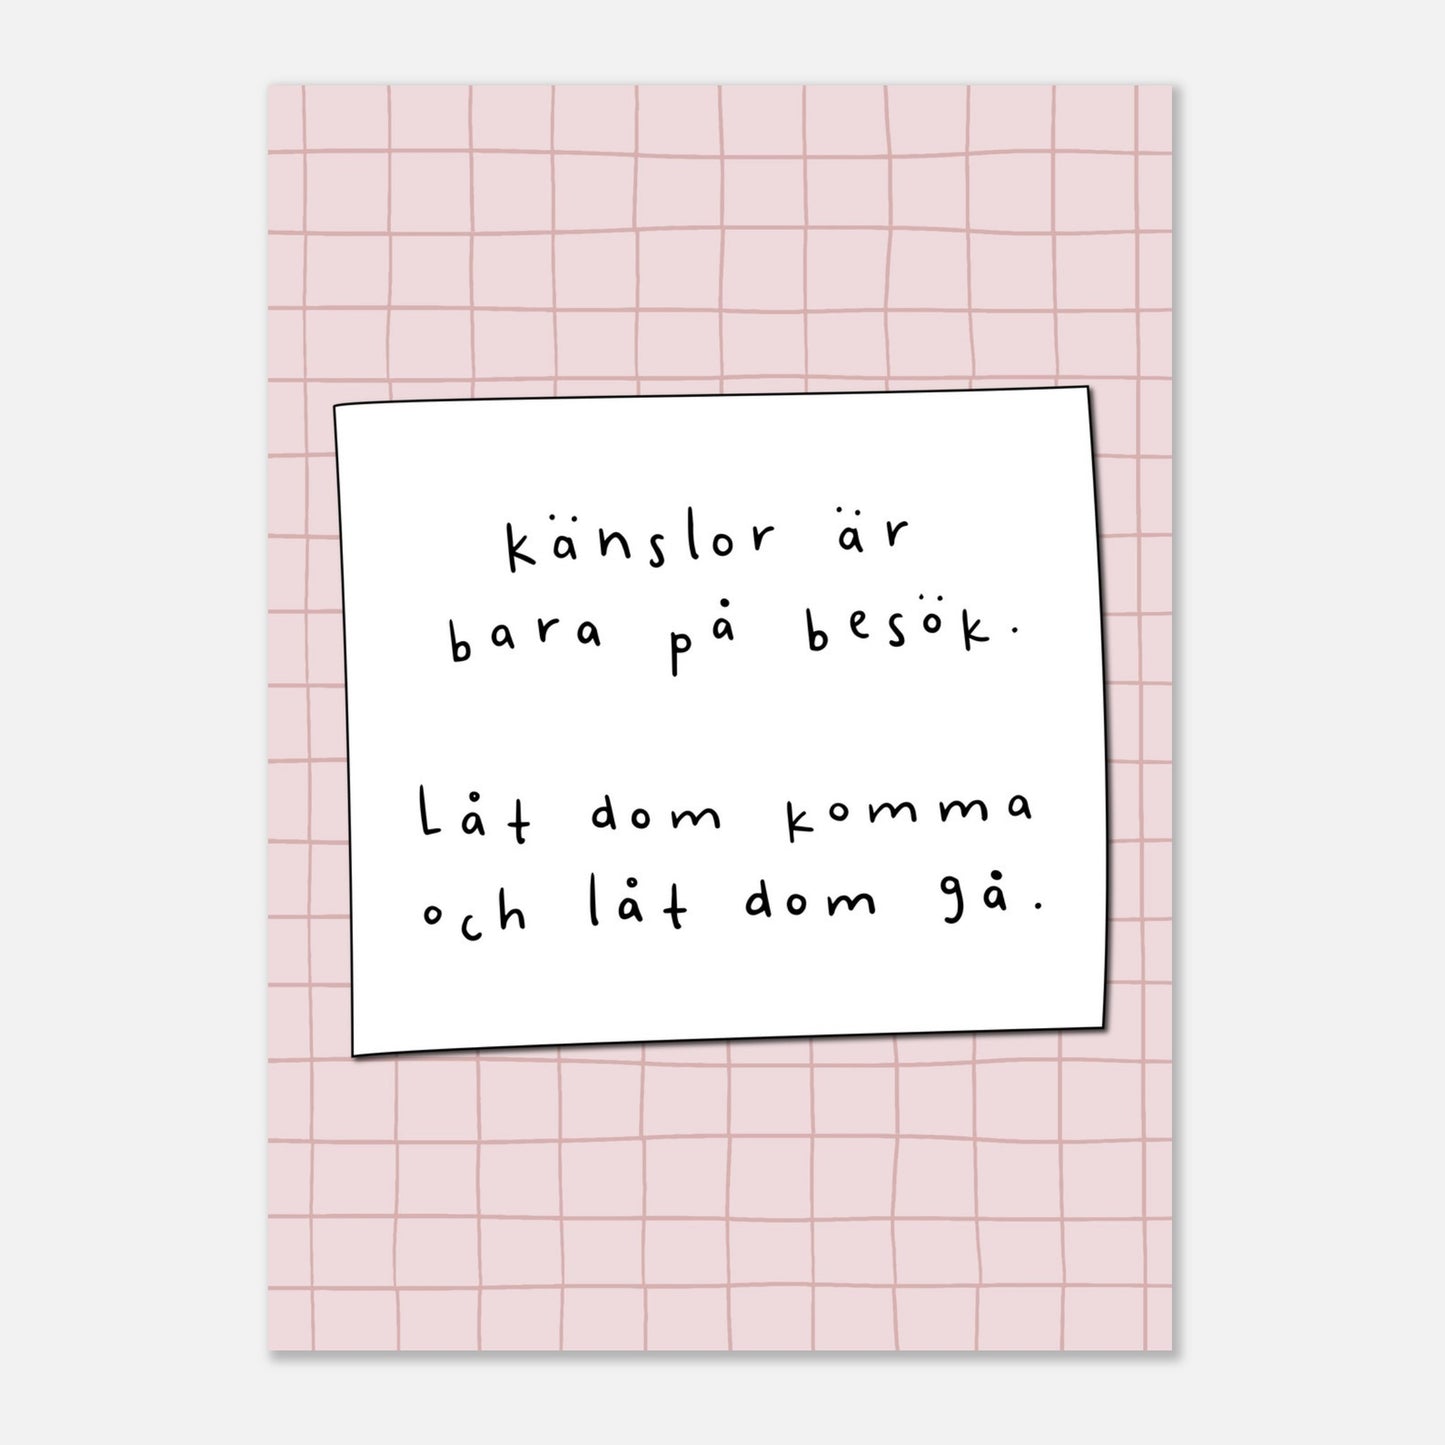 känslor är
bara på besök.
Låt dom komma
och låt dom gå.